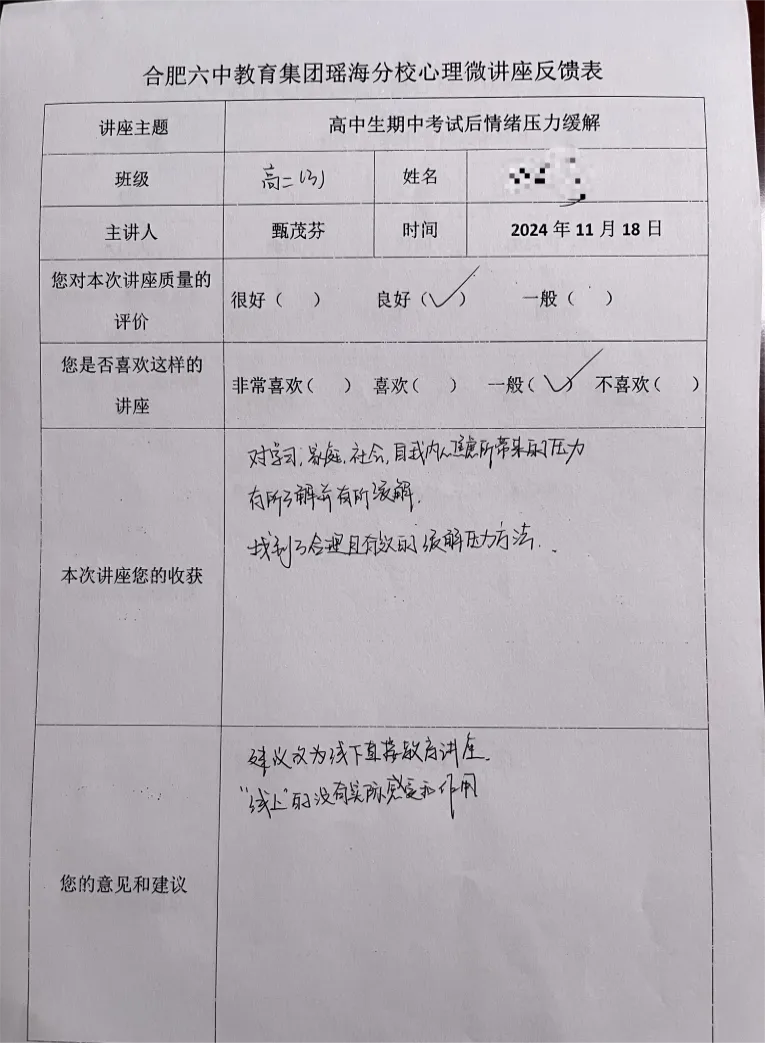 合肥六中教育集团瑶海分校心理微讲座反馈表
讲座主题 高中生期中考试后情绪压力缓解
班级 高二(3) 姓名
主讲人 甄茂芬 时间 2024 年 11 月 18 日
您对本次讲座质量的
评价
很好( ) 良好(✓) 一般( )
您是否喜欢这样的
讲座
非常喜欢( ) 喜欢( ) 一般(✓) 不喜欢( )
本次讲座您的收获
对学习,家庭,社会,自我内心焦虑所带来的压力
有所了解并有所缓解.
找到了合理且有效的缓解压力方法.
您的意见和建议
建议改为线下直接教育讲座.
“线上”的没有实际感受和作用